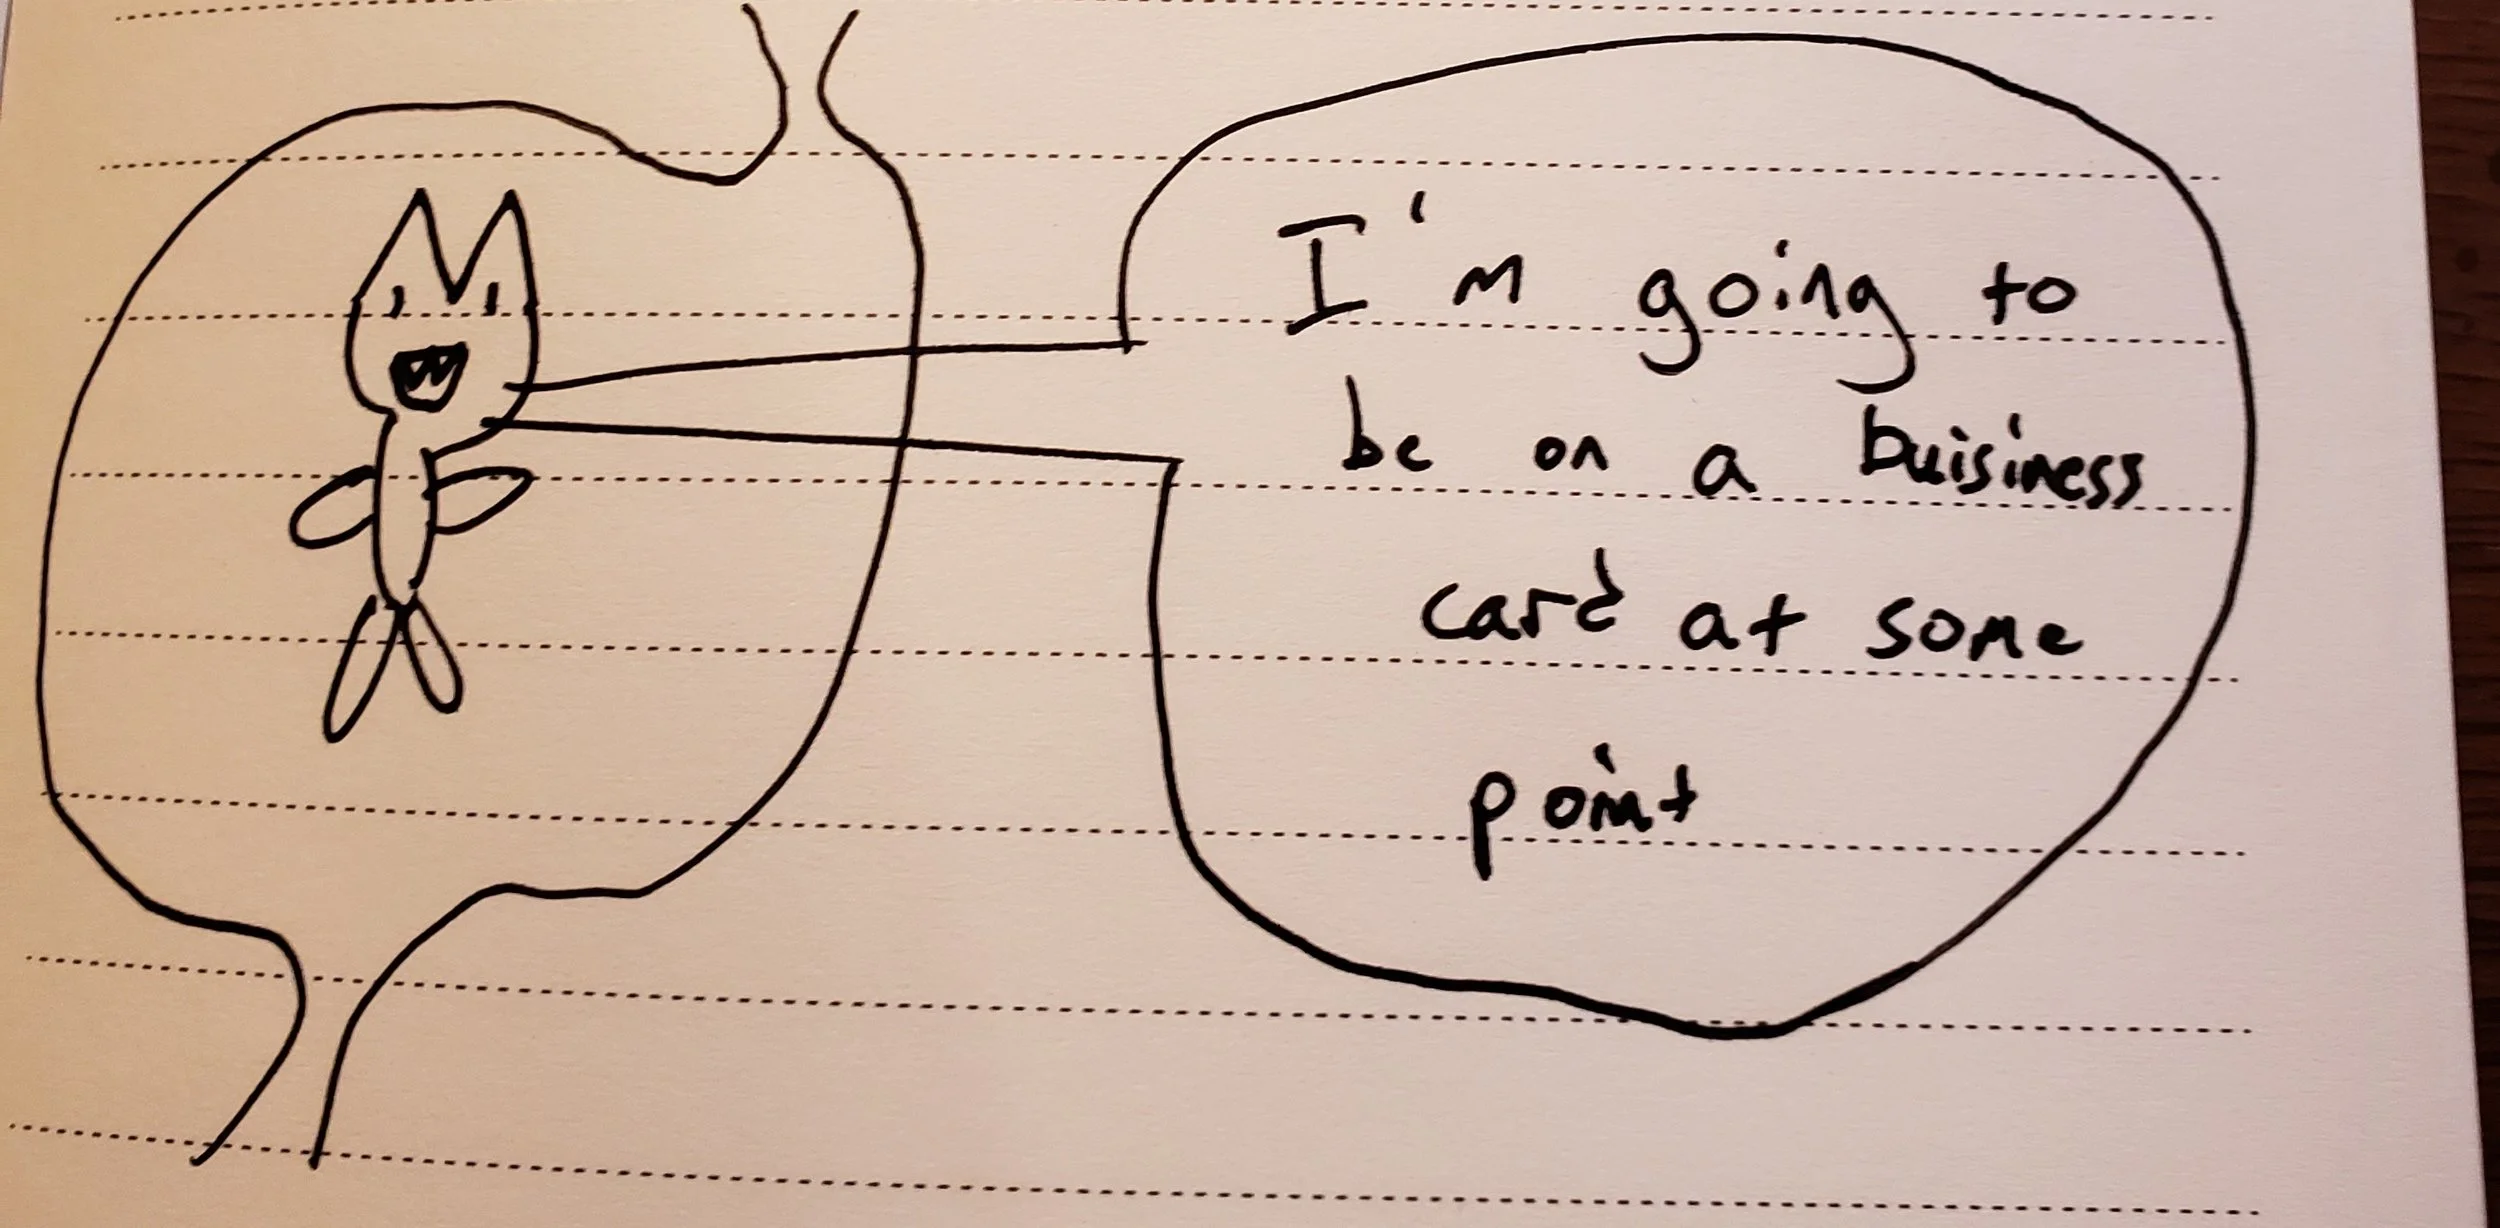 I'm going to
be on a buisiness
card at some
point